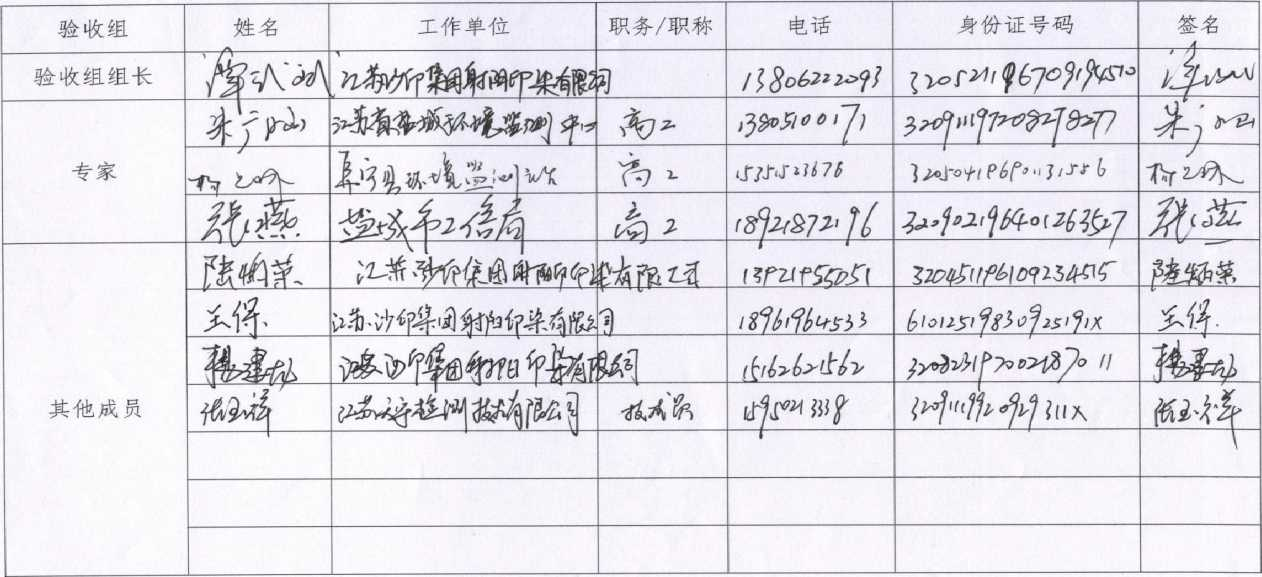 验收组 姓名 工作单位 职务/职称 电话 身份证号码 签名
验收组组长 江苏沙印集团射阳印染有限公司 13806222093
专家
朱广山 江苏省盐城环境监测中心 高工 13805100171 320911197208278277 朱广山
阜宁县环境监测站 高工 15351523676 320504196901131556
张燕 盐城市工信局 高工 18921872196 320902196401263527 张燕
其他成员
江苏沙印集团射阳印染有限公司 13921955051 320451196109234515
王得 江苏沙印集团射阳印染有限公司 18961964533 61012519830925191X 王得
江苏沙印集团射阳印染有限公司 15162621562
张玉祥 江苏天宇检测技术有限公司 技术员 15950213338 32091119920929311X 张玉祥